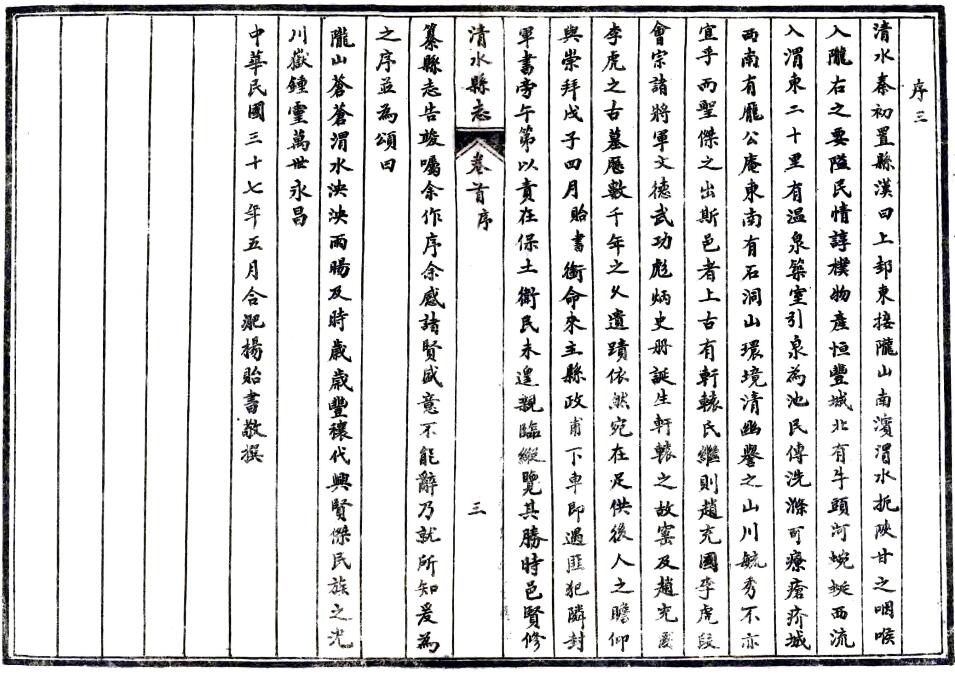 序三
清水秦初置縣漢曰上邽東接隴山南濱渭水扼陝甘之咽喉
入隴右之要隘民情諄樸物產恒豐城北有牛頭河蜿蜒西流
入渭東二十里有溫泉築室引泉為池民傳洗滌可療瘡疥城
西南有龐公庵東南有石洞山環境清幽譽之山川毓秀不亦
宜乎而聖傑之出斯邑者上古有軒轅氏繼則趙充國李虎段
會宗諸將軍文德武功彪炳史册誕生軒轅之故窰及趙充國
李虎之古墓歷數千年之久遺蹟依然宛在足供後人之瞻仰
與崇拜戊子四月貽書銜命來主縣政甫下車即遇匪犯隣封
軍書旁午第以責在保土衛民未遑親臨縱覽其勝時邑賢修
清水縣志 卷首序 三
纂縣志告竣囑余作序余感諸賢盛意不能辭乃就所知爰為
之序並為頌曰
隴山蒼蒼渭水泱泱雨暘及時歲歲豐穰代興賢傑民族之光
川嶽鍾靈萬世永昌
中華民國三十七年五月合淝楊貽書敬撰